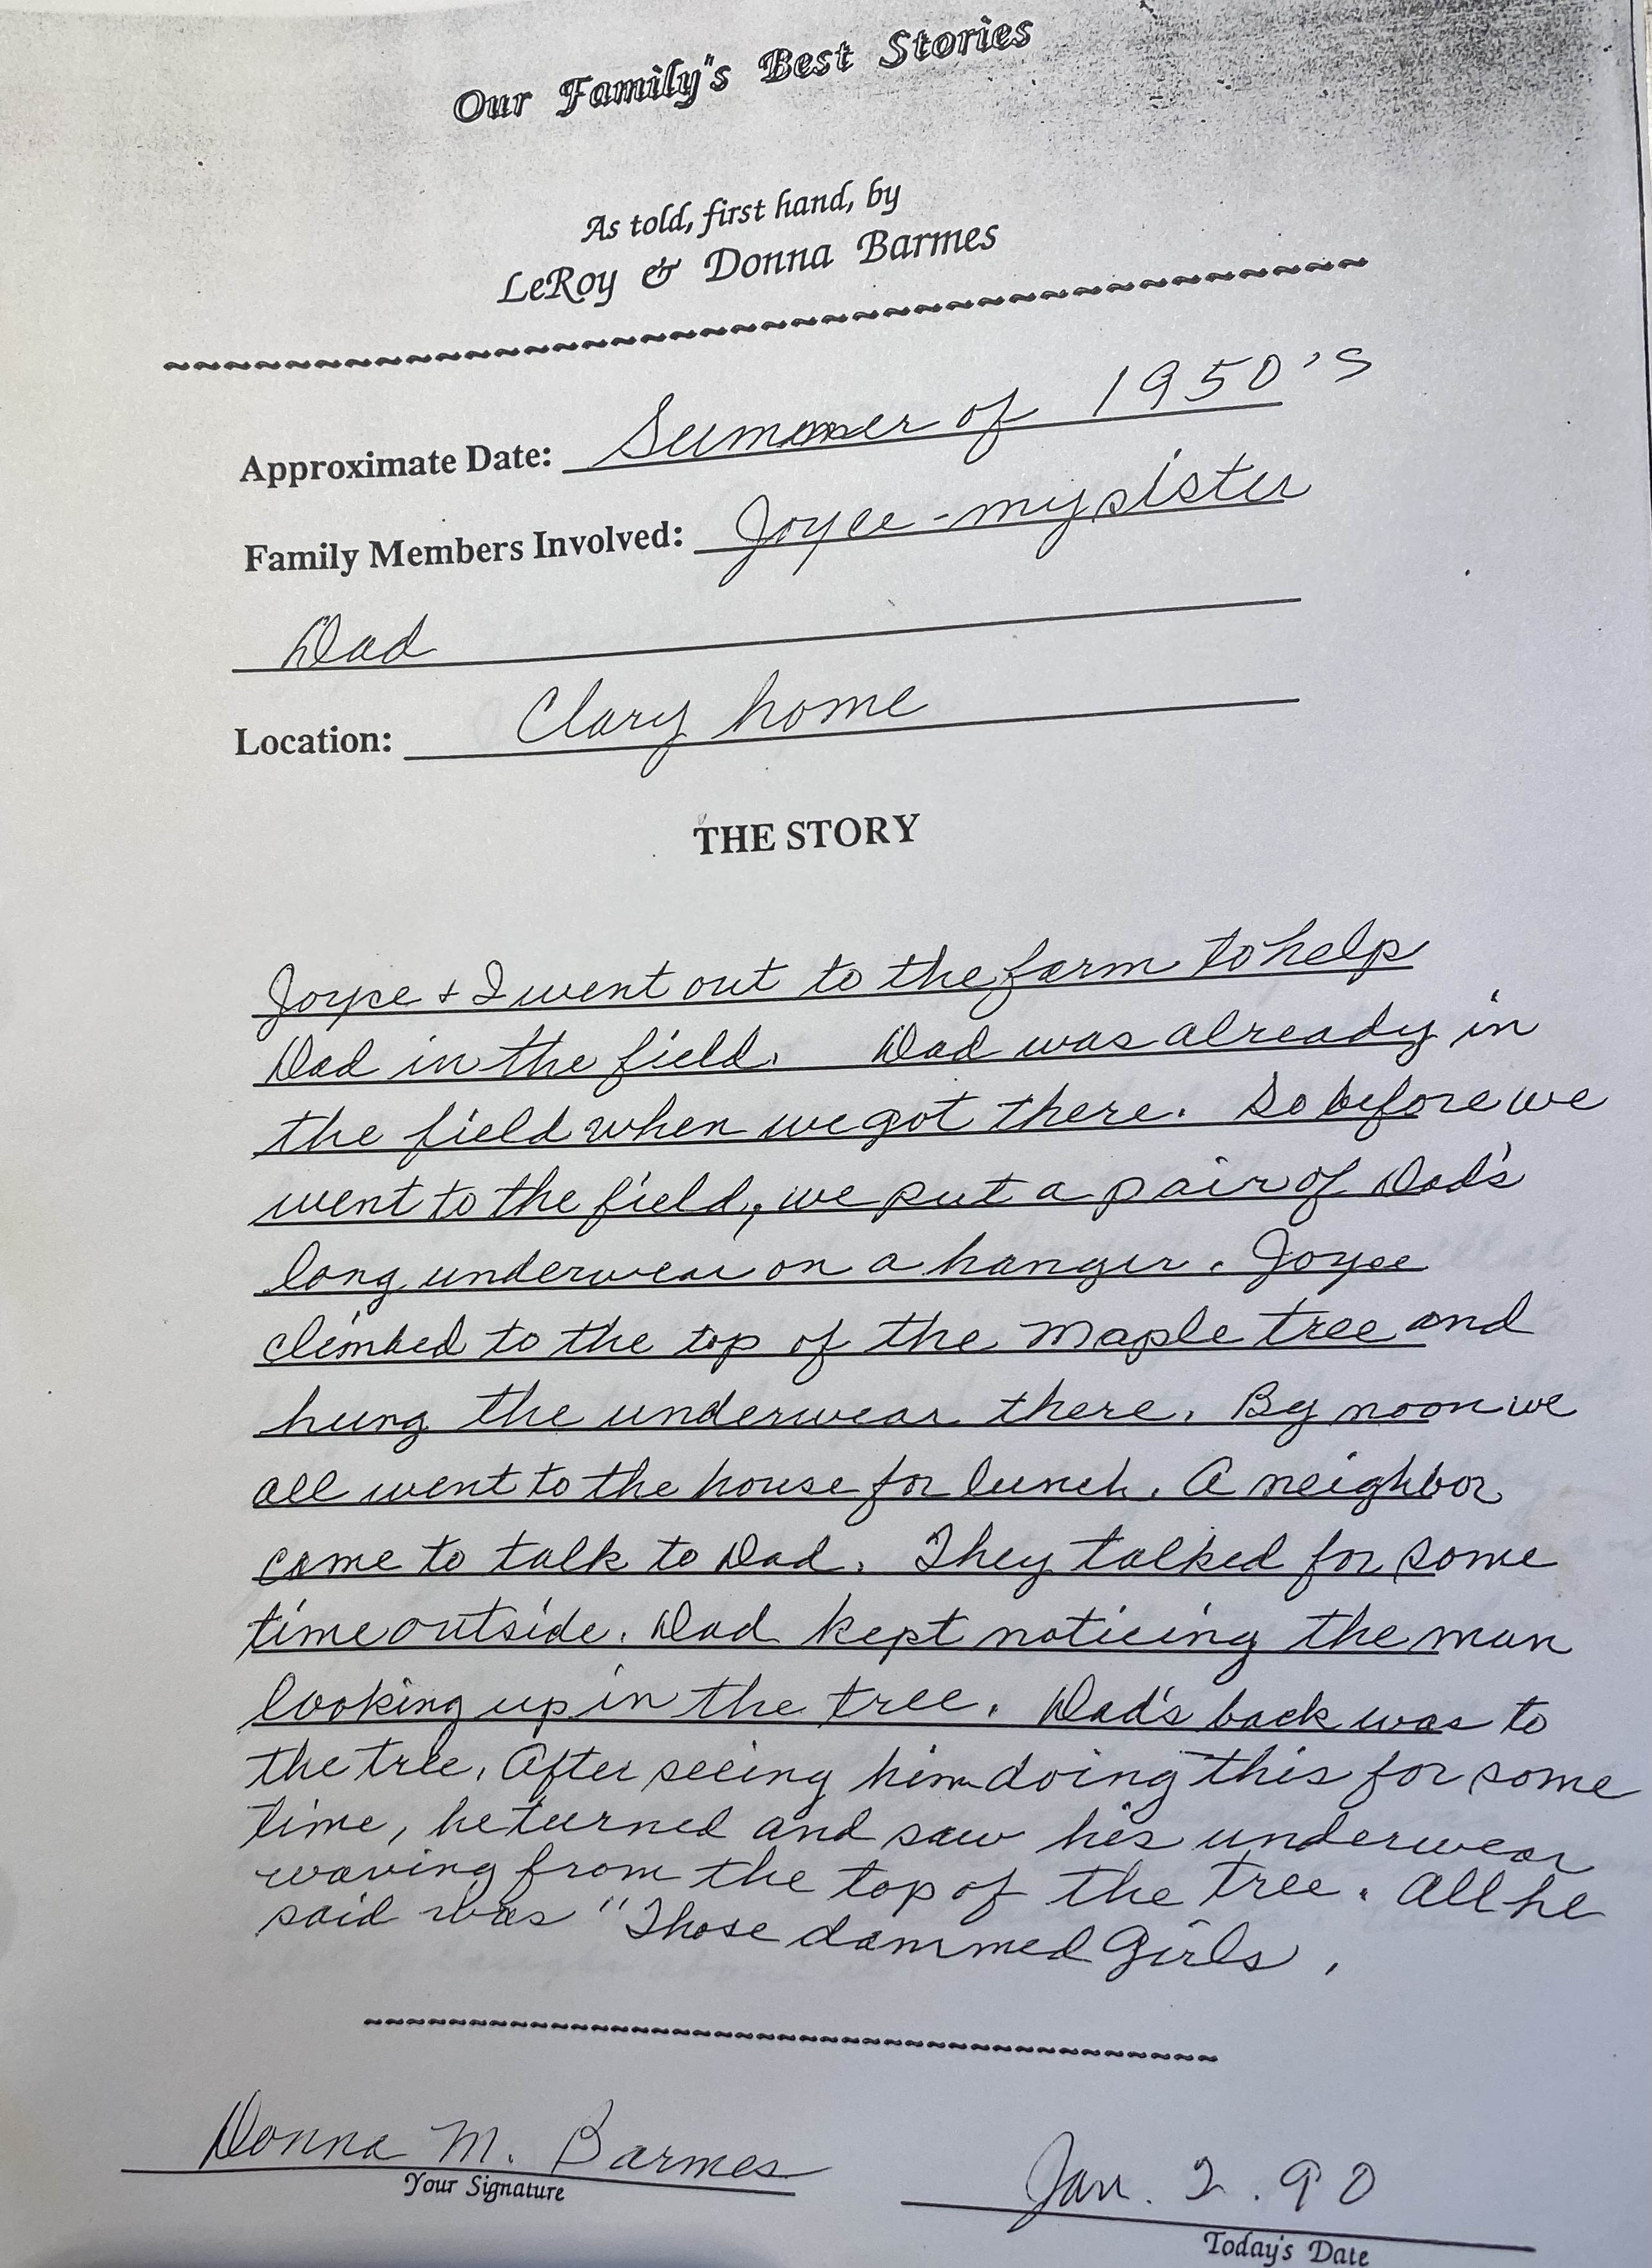 Our Family's Best Stories
As told, first hand, by
LeRoy & Donna Barmes
Approximate Date: Summer of 1950's
Family Members Involved: Joyce - my sister
Dad
Location: Clary home
THE STORY
Joyce + I went out to the farm to help
Dad in the field. Dad was already in
the field when we got there. So before we
went to the field, we put a pair of Dad's
long underwear on a hanger. Joyce
climbed to the top of the Maple tree and
hung the underwear there. By noon we
all went to the house for lunch. A neighbor
came to talk to Dad. They talked for some
time outside. Dad kept noticing the man
looking up in the tree. Dad's back was to
the tree. After seeing him doing this for some
time, he turned and saw his underwear
waving from the top of the tree. All he
said was "Those dammed Girls.
Donna M. Barmes
Your Signature
Jan. 2. 90
Today's Date